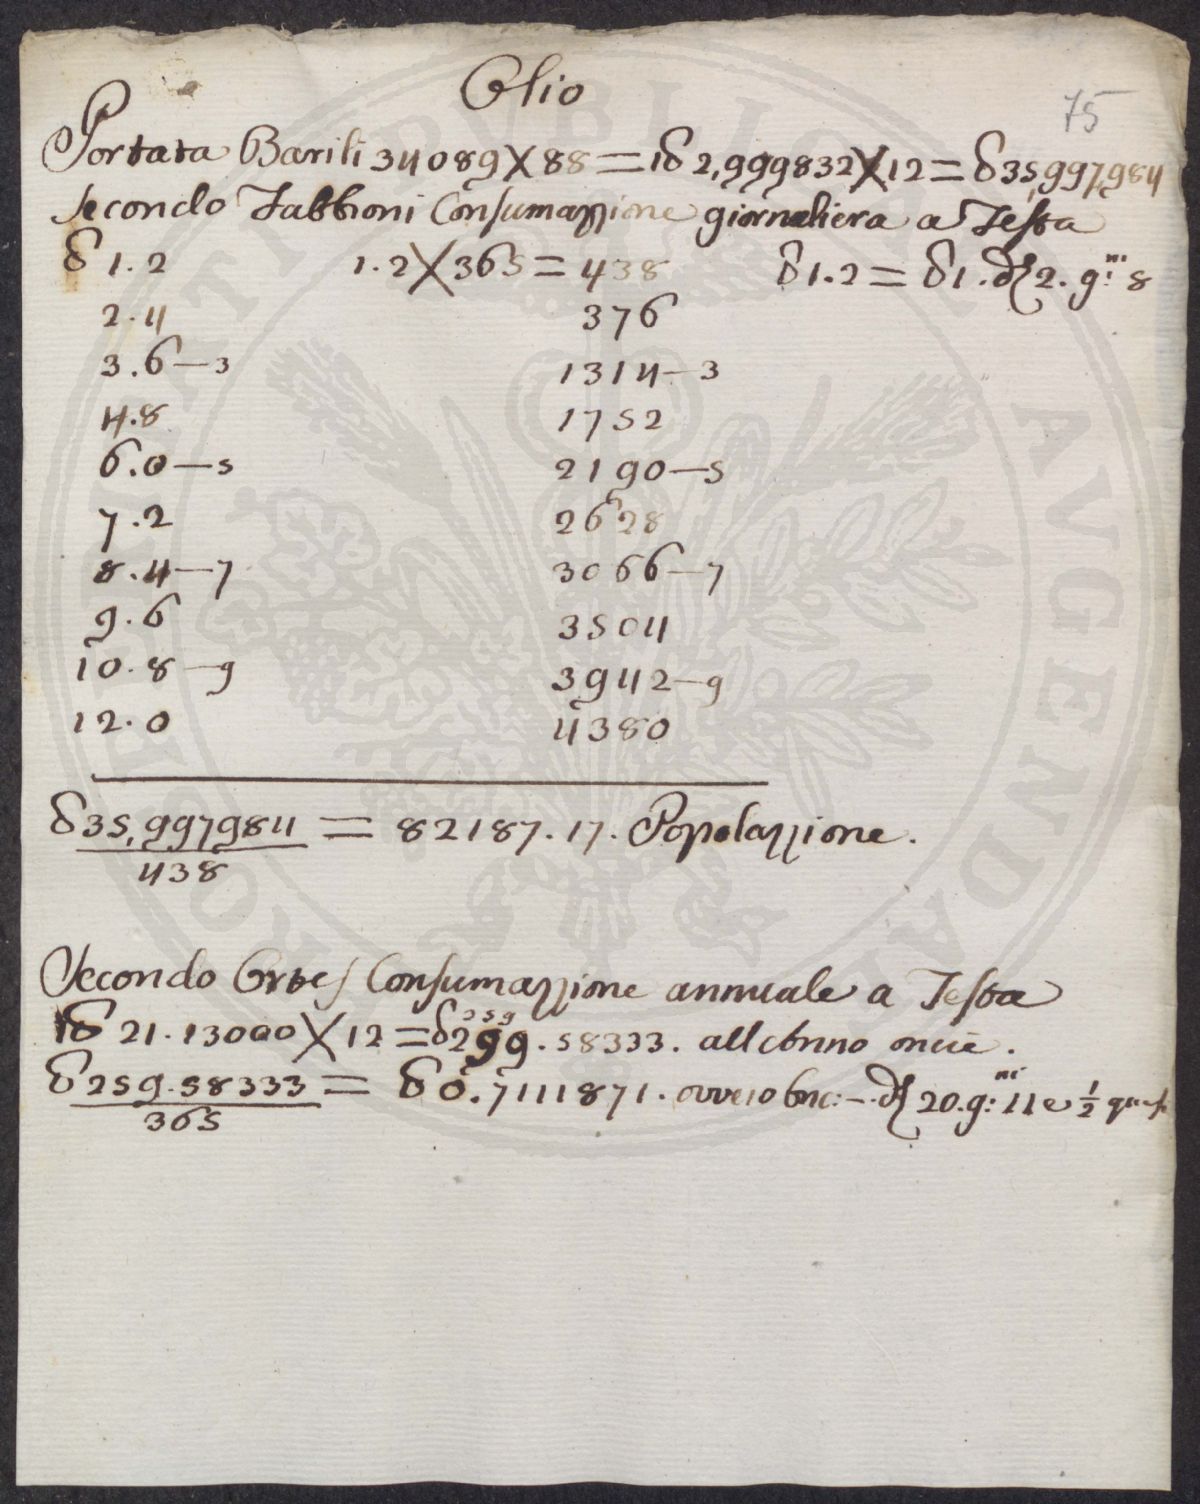 Olio
75
Portata Barili 34089 X 88 = lb 2,999832 X 12 = δ 35,997984
secondo Fabbroni Consumazzione giornaliera a Testa
δ 1.2 1.2 X 365 = 438 δ 1.2 = δ 1. d 2. g:ni 8
2.4 376
3.6—3 1314—3
4.8 1752
6.0—5 2190—5
7.2 2628
8.4—7 3066—7
9.6 3504
10.8—9 3942—9
12.0 4380
δ 35,997984 = 82187.17. Popolazzione.
438
Secondo Ortes Consumazzione annuale a Testa
259
lb 21.13000 X 12 = δ 299.58333. all'Anno oncie.
δ 259.58333 = δ 0.7111871. ovvero Onc: –. d 20. g:ni 11 e 1/2
365
PUBLICAE AUGENDAE